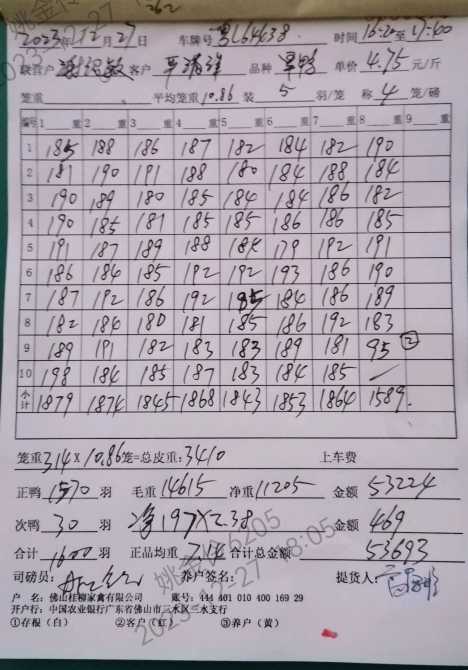 2023年12月27日 车牌号粤L64638 时间16:20至17:00
客户 品种 单价4.75元/斤
笼重 平均笼重10.86 装5羽/笼 称4笼/磅
编号 1 重 2 重 3 重 4 重 5 重 6 重 7 重 8 重 9 重
1 185 188 186 187 182 184 182 190
2 181 190 191 188 180 184 188 184
3 190 189 180 185 184 184 186 182
4 190 185 181 185 185 186 186 185
5 191 187 189 188 184 179 192 191
6 186 184 185 192 192 193 186 190
7 187 192 186 192 185 184 186 189
8 182 184 180 181 185 186 192 183
9 189 191 182 183 183 189 181 95 ②
10 198 184 185 187 183 184 185
小计 1879 1874 1845 1868 1843 1853 1864 1589
笼重314×10.86笼=总皮重:3410 上车费
正鸭1570羽 毛重14615 净重11205 金额53224
次鸭30羽 净197×2.38 金额469
合计1600羽 正品均重7.14 合计总金额53693
司磅员: 养户签名: 提货人:
户 名: 佛山桂柳家禽有限公司 账号: 444 401 010 400 169 29
开户行: 中国农业银行广东省佛山市三水区三水支行
①存根(白) ②客户(红) ③养户(黄)